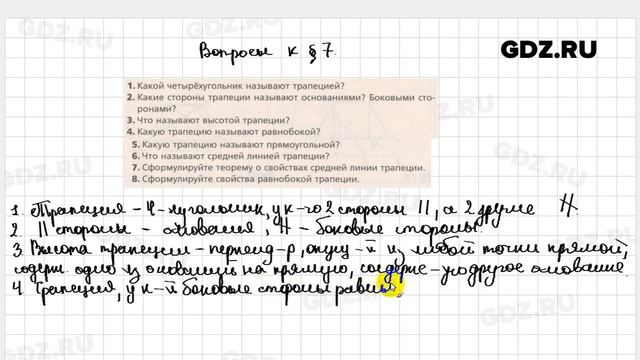 Вопросы к § 7.
GDZ.RU
1. Какой четырёхугольник называют трапецией?
2. Какие стороны трапеции называют основаниями? Боковыми сто-
ронами?
3. Что называют высотой трапеции?
4. Какую трапецию называют равнобокой?
5. Какую трапецию называют прямоугольной?
6. Что называют средней линией трапеции?
7. Сформулируйте теорему о свойствах средней линии трапеции.
8. Сформулируйте свойства равнобокой трапеции.
1. Трапеция – 4-хугольник, у к-го 2 стороны ||, а 2 другие ∦.
2. || стороны – основания, ∦ – боковые стороны.
3. Высота трапеции – перпенд-р, опущ-й из любой точки прямой,
содерж. одно из оснований на прямую, содерж-ую другое основание.
4. Трапеция, у к-й боковые стороны равны